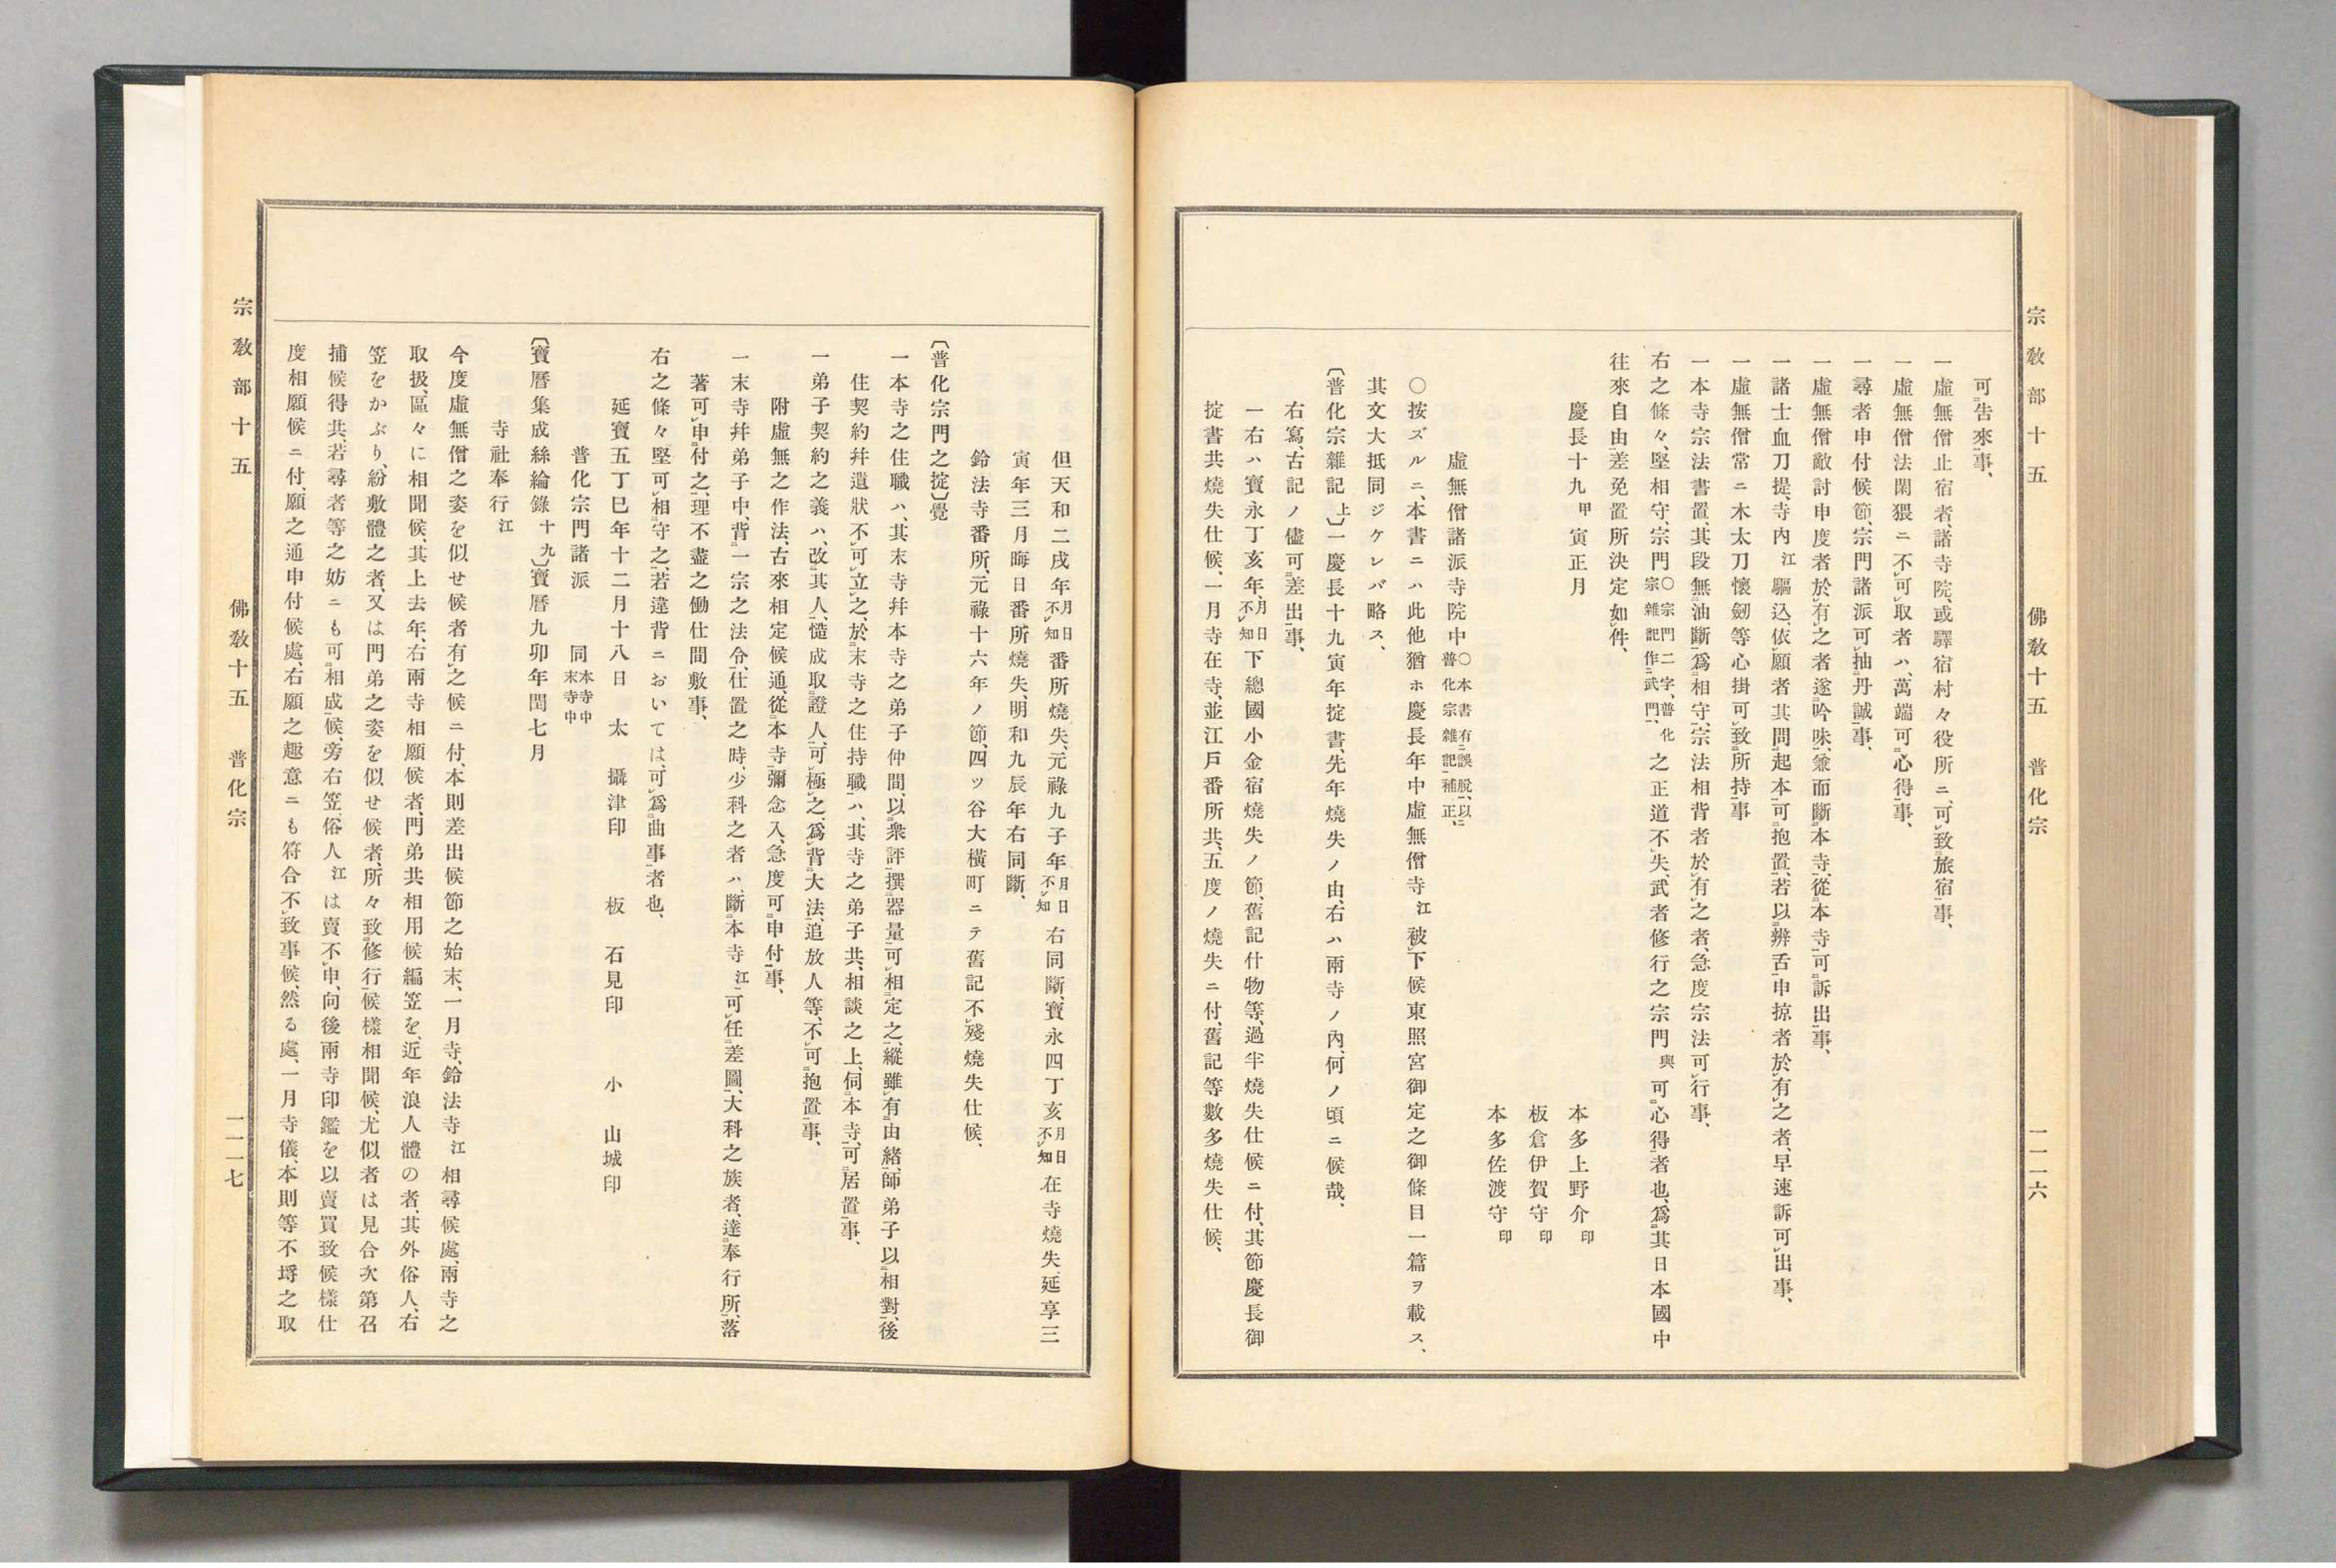 宗教部十五　佛教十五　普化宗　一一一六
可㆓告來㆒事、
一虛無僧止宿者、諸寺院、或驛宿村々役所ニ、可㆑致㆓旅宿㆒事、
一虛無僧法閑猥ニ不㆑可㆑取者ハ、萬端可㆓心得㆒事、
尋者申付候節、宗門諸派可㆑抽㆓丹誠㆒事、
一虛無僧敵討申度者於㆑有㆑之者、遂㆓吟味㆒、兼而斷㆓本寺㆒、從㆓本寺㆒可㆓訴出㆒事、
諸士血刀提、寺內江驅込、依㆑願者其問㆓起本㆒、可㆓抱置㆒、若以㆓辨舌㆒申掠者於㆑有㆑之者、早速訴可㆑出事、
一虛無僧常ニ木太刀懷劔等心掛可㆑致㆓所持㆒事
一本寺宗法書置、其段無㆓油斷㆒、爲㆓相守㆒、宗法相背者於㆑有㆑之者、急度宗法可㆑行事、
右之條々、堅相守、宗門〇宗門二字、普化宗雜記作㆓武門㆒、之正道不㆑失、武者修行之宗門與可㆓心得㆒者也、爲㆑其日本國中
往來自由、差免置所決定如㆑件、
慶長十九甲寅正月
本多上野介印
板倉伊賀守印
本多佐渡守印
虛無僧諸派寺院中〇本書有㆓誤脫㆒、以㆓普化宗雜記㆒補正、
〇按ズルニ、本書ニハ此他猶ホ慶長年中虛無僧寺江被㆑下候東照宮御定之御條目一篇ヲ載ス、
其文大抵同ジケレバ略ス、
〔普化宗雜記上〕一慶長十九寅年掟書、先年燒失ノ由、右ハ兩寺ノ內、何ノ頃ニ候哉、
右寫、古記ノ儘可㆓差出㆒事、
一右ハ寶永丁亥年、月日不㆑知下總國小金宿燒失ノ節、舊記什物等、過半燒失仕候ニ付、其節慶長御
掟書共燒失仕候、一月寺在寺、並江戶番所共、五度ノ燒失ニ付、舊記等數多燒失仕候、
但天和二戌年月日不㆑知番所燒失、元祿九子年月日不㆑知右同斷、寶永四丁亥月日不㆑知在寺燒失、延享三
寅年三月晦日番所燒失、明和九辰年右同斷、
鈴法寺番所、元祿十六年ノ節、四ツ谷大橫町ニテ舊記不㆑殘燒失仕候、
〔普化宗門之掟〕覺
一本寺之住職ハ、其末寺幷本寺之弟子仲間、以㆓衆評㆒撰㆓器量㆒、可㆑相㆓定之㆒、縱雖㆑有㆓由緖㆒、師弟子以㆓相對㆒、後
住契約幷遺狀不㆑可㆑立㆑之、於㆓末寺之住持職㆒ハ、其寺之弟子共、相談之上、伺㆓本寺㆒、可㆓居置㆒事、
一弟子契約之義ハ、改㆓其人㆒、慥成取㆓證人㆒、可㆑極㆑之、爲㆑背㆓大法㆒、追放人等、不㆑可㆓抱置㆒事、
附虛無之作法、古來相定候通、從㆓本寺㆒彌念入、急度可㆓申付㆒事、
一末寺幷弟子中、背㆓一宗之法令㆒、仕置之時、少科之者ハ、斷㆓本寺江㆒可㆑任㆓差圖㆒、大科之族者、達㆓奉行所㆒、落
著可㆑申㆓付之㆒、理不盡之働仕間敷事、
右之條々堅可㆑相㆓守之㆒、若違背ニおいては、可㆑爲㆓曲事㆒者也、
延寶五丁巳年十二月十八日　太　攝津印　板　石見印　小　山城印
普化宗門諸派　同本寺中末寺中
〔寶曆集成絲綸錄十九〕寶曆九卯年閏七月
寺社奉行江
今度虛無僧之姿を似せ候者有㆑之候ニ付、本則差出候節之始末、一月寺、鈴法寺江相尋候處、兩寺之
取扱、區々に相聞候、其上去年、右兩寺相願候者、門弟共相用候編笠を、近年浪人體の者、其外俗人、右
笠をかぶり、紛敷體之者、又は門弟之姿を似せ候者、所々致㆓修行㆒候樣相聞候、尤似者は見合次第召
捕候得共、若尋者等之妨ニも可㆓相成㆒候、旁右笠、俗人江は賣不㆑申、向後兩寺印鑑を以賣買致候樣仕
度相願候ニ付、願之通申付候處、右願之趣意ニも符合不㆑致事候、然る處、一月寺儀、本則等不埒之取
宗教部十五　佛教十五　普化宗　一一一七